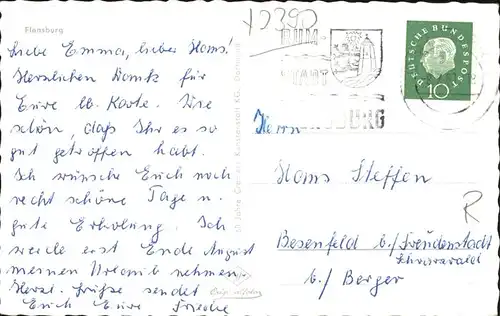 Flensburg
Liebe Emma, lieber Hans!
Herzlichen Dank für
Eure lb. Karte. Wie
schön, daß Ihr es so
gut getroffen habt.
Ich wünsche Euch noch
recht schöne Tage u.
gute Erholung. Ich
werde erst Ende August
meinen Urlaub nehmen.
Herzl. Grüße sendet
Euch Eure Frieda
DEUTSCHE BUNDESPOST
10
STADT
BURG
Herrn
Hans Steffen
Besenfeld b./Freudenstadt
Schwarzwald
b./ Berger
R